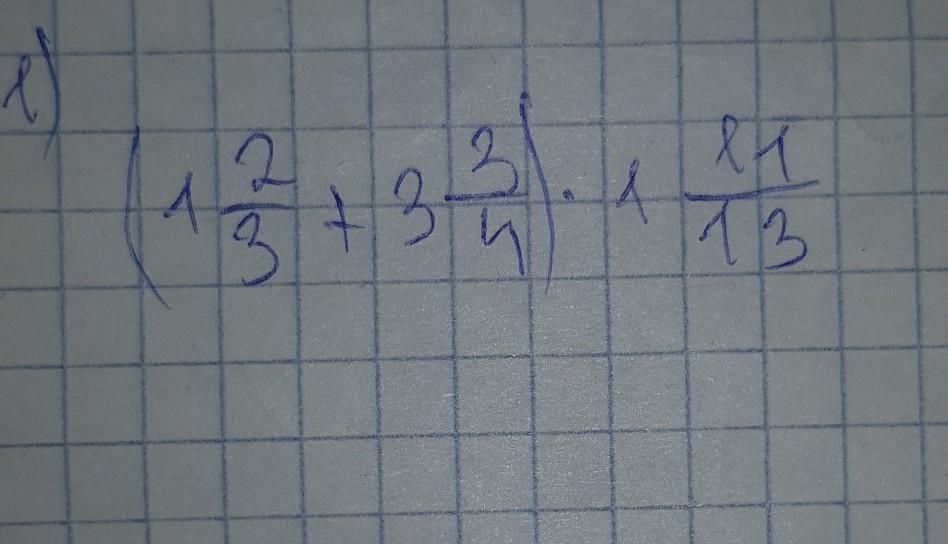 1)
(1 2/3 + 3 3/4) · 1 11/13